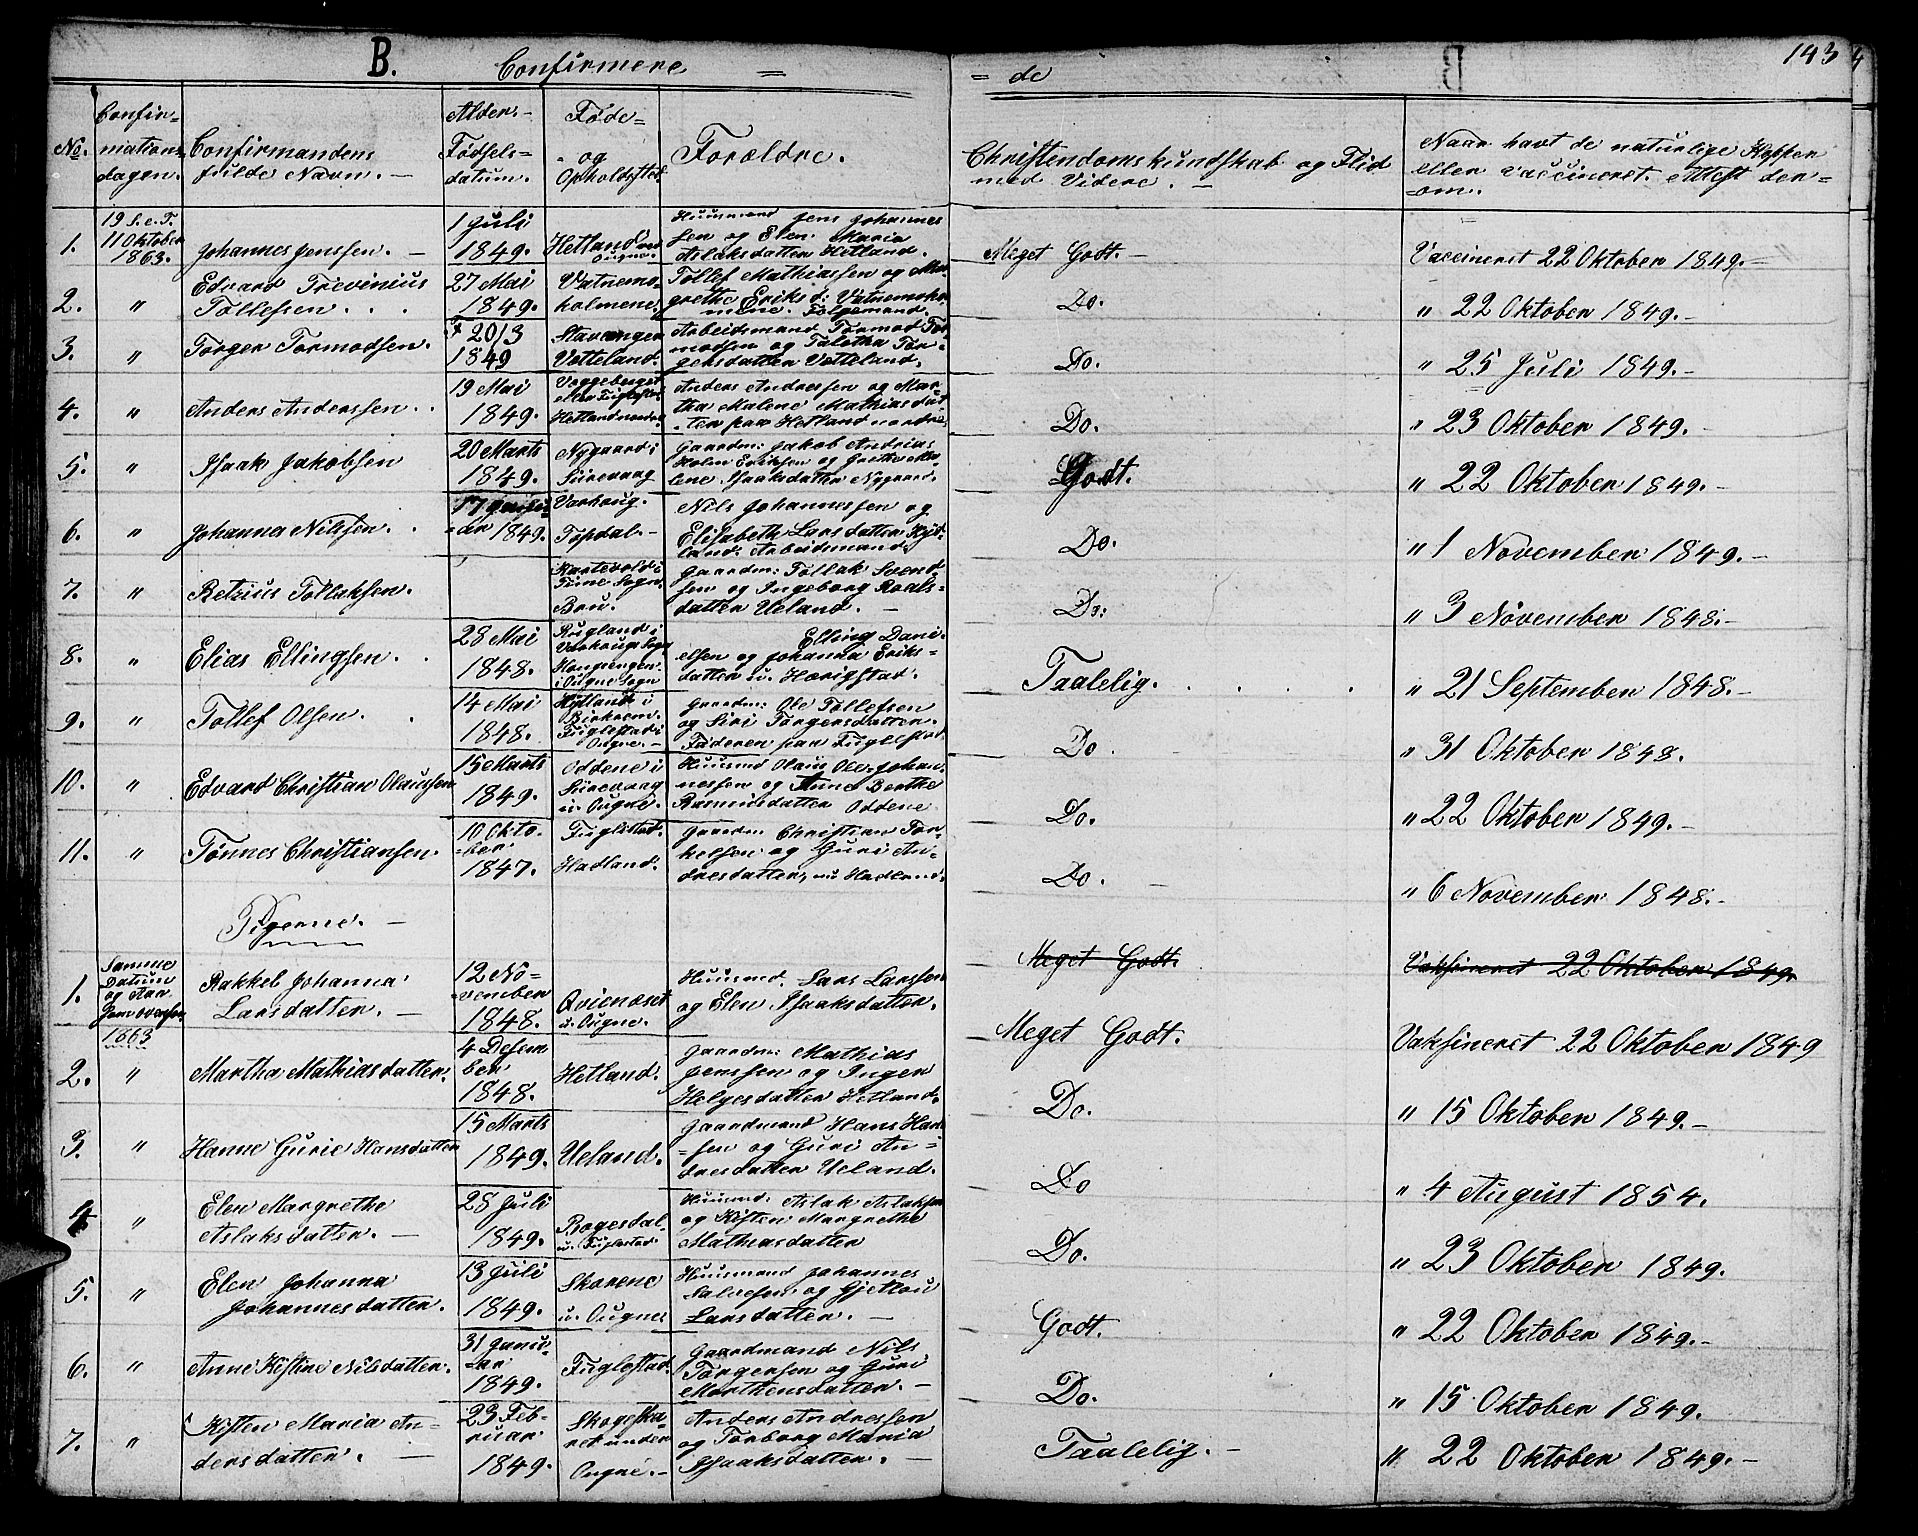 B.
Confirmere =
= de
143
No.
Confir=
mations
dagen.
Confirmandens
fulde Navn. —
Alder. —
Fødsels=
datum.
Føde=
og
Opholdsted
Forældre.
Christendomskundskab og Flid
med Videre. —
Naar havt de naturlige Kopper
eller vaccineret. Attest der=
=om.
1.
19 S. e. T.
11 Oktober
1863.
Johannes Jenssen. —
1 Juli
1849.
Hetland i
Ougne.
Huusmand Jens Johannes
sen og Elen Maria
Aslaksdatter Hetland.
Meget Godt. —
Vaccineret 22 Oktober 1849. —
2.
"
Edvard Trevinius
Tollefsen . . .
27 Mai
1849.
Vatnemo
holmene.
Tollef Mathiassen og Mar
grethe Eriks d: Vatnemohol
mene.
Do.
" 22 Oktober 1849. —
3.
"
Torger Tormodsen.
20/3
1849
Stavanger
Vatteland.
Arbeidsmand Tormod Tor
modsen og Taletha Tor=
gersdatter Vatteland.
Do.
" 25 Juli 1849. —
4.
"
Anders Anderssen . .
19 Mai
1849.
Hetland nordre
Anders Andressen og Mar
tha Malene Mathiasdat
ter paa Hetland nordre
Do.
" 23 Oktober 1849. —
5.
"
Isaak Jakobsen
20 Marts
1849.
Nygaard i
Sirevaag
Gaardm: Jakob Andreas
Holm Eriksen og Grethe Ma=
lene Isaaksdatter Nygaard.
Godt.
" 22 Oktober 1849. —
6.
"
Johannes Nilssen. .
17 Janu
=ar 1849.
Varhoug.
Topdal. —
Nils Johannessen og
Elisabeth Larsdatter Hød
land. Arbeidsmand.
Do.
" 1 November 1849. —
7.
"
Retzius Tollaksen.
Time Sogn.
Bru.
Gaardm: Tollak Svend
sen og Ingeborg Roals=
datter Ueland. —
Do:
" 3 November 1848. —
8.
"
Elias Ellingsen. .
28 Mai
1848.
Rugland i
Varhoug Sogn
Hougengen
i Ougne Sogn
Elling Dani
elsen og Johanna Eriks=
datter u. Hærigstad.
Taalelig. . . . .
" 21 September 1848. —
9.
"
Tollef Olsen. .
14 Mai
1848.
Hytland i
Birkrem.
Fuglestad i
Ougne. —
Gaardm: Ole Tollefsen
og Siri Torgersdatter.
Faderen paa Fuglestad
Do
" 31 Oktober 1848.
10.
"
Edvard Christian Olaussen
15 Marts
1849.
Oddene i
Sirevaag
u. Ougne.
Huusmd Olaus Ole Johan
nessen og Anne Berthe
Rasmusdatter Oddene
Do.
" 22 Oktober 1849. —
11.
"
Tønnes Christiansen.
10 Okto.
=ber
1847.
Fuglestad.
Hadland.
Gaardm: Christian Tor
kelsen og Guri An=
dresdatter, nu Hadland.
Do. —
" 6 November 1848. —
Pigerne. —
1.
Samme
Datum
og Aar
som ovenfor
1863
Rakkel Johanna
Larsdatter. —
12 No=
vember
1848.
Qvieneset
u. Ougne.
Huusmd. Lars Larssen
og Elen Isaaksdatter.
Meget Godt.
Vaksineret 22 Oktober 1849.
Meget Godt.
Vaksineret 22 Oktober 1849
2.
"
Martha Mathiasdatter.
4 Desem
ber
1848.
Hetland.
Gaardm: Mathias
Jenssen og Inger
Helgesdatter Hetland.
Do.
" 15 Oktober 1849. —
3.
"
Hanne Gurie Hansdatter
15 Marts
1849.
Ueland.
Gaardmand Hans Han
=sen og Guri An=
dresdatter Ueland.
Do
" 4 August 1854.
4
"
Elen Margrethe
Aslaksdatter. —
28 Juli
1849.
Bogesdal
u. Fuglestad
Huusmd: Aslak Aslaksen
og Kisten Margrethe
Mathiasdatter
Do.
" 23 Oktober 1849.
5.
"
Elen Johanna
Johannesdatter.
13 Juli
1849.
Skarene
u. Ougne
Huusmand Johannes
Salvesen og Gjertou
Larsdatter. —
Godt.
" 22 Oktober 1849. —
6.
"
Anne Kistine Nilsdatter.
31 Janu=
ar
1849.
Fuglestad.
Gaardmand Nils
Torgersen og Guri
Morthensdatter. —
Do.
" 15 Oktober 1849.
7.
"
Kisten Maria An=
dersdatter. —
23 Feb=
ruar
1849.
Skogeska=
ret under
Ougne. —
Anders Andressen
og Torborg Maria
Isaaksdatter. —
Taalelig. —
" 22 Oktober 1849. —